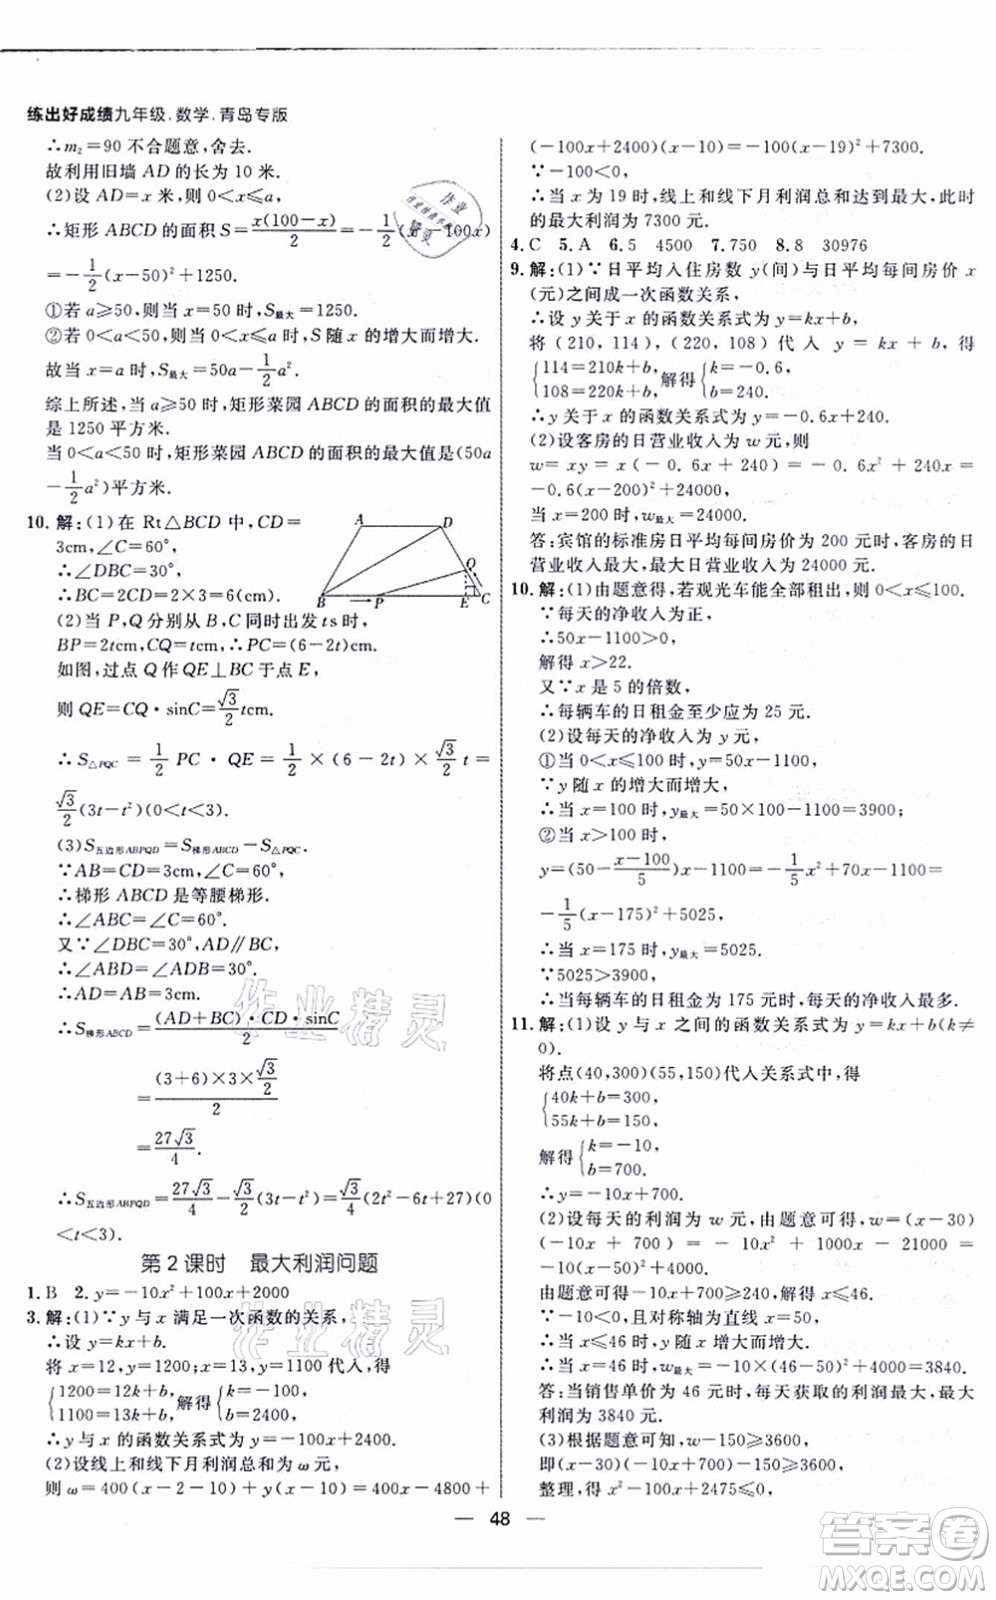 练出好成绩九年级.数学.青岛专版
∴m₂=90不合题意,舍去.
故利用旧墙AD的长为10米.
(2)设AD=x米,则0<x≤a,
∴矩形ABCD的面积S=x(100-x)/2=-1/2(x²-100x)=
-1/2(x-50)²+1250.
①若a≥50,则当x=50时,S最大=1250.
②若0<a<50,则当0<x≤a时,S随x的增大而增大.
故当x=a时,S最大=50a-1/2a².
综上所述,当a≥50时,矩形菜园ABCD的面积的最大值
是1250平方米.
当0<a<50时,矩形菜园ABCD的面积的最大值是(50a
-1/2a²)平方米.
10.解:(1)在Rt△BCD中,CD=
3cm,∠C=60°,
∴∠DBC=30°.
∴BC=2CD=2×3=6(cm).
(2)当P,Q分别从B,C同时出发ts时,
BP=2tcm,CQ=tcm,PC=(6-2t)cm.
如图,过点Q作QE⊥BC于点E,
则QE=CQ·sinC=√3/2tcm.
∴S△PQC=1/2PC·QE=1/2×(6-2t)×√3/2t=
√3/2(3t-t²)(0<t<3).
(3)S五边形ABPQD=S梯形ABCD-S△PQC.
∵AB=CD=3cm,∠C=60°,
∴梯形ABCD是等腰梯形.
∴∠ABC=∠C=60°.
又∵∠DBC=30°,AD∥BC,
∴∠ABD=∠ADB=30°.
∴AD=AB=3cm.
∴S梯形ABCD=(AD+BC)·CD·sinC/2
=(3+6)×3×√3/2/2
=27√3/4.
∴S五边形ABPQD=27√3/4-√3/2(3t-t²)=√3/4(2t²-6t+27)(0
<t<3).
A
D
Q
B
P
E
C
第2课时 最大利润问题
1.B 2.y=-10x²+100x+2000
3.解:(1)∵y与x满足一次函数的关系,
∴设y=kx+b.
将x=12,y=1200;x=13,y=1100代入,得
{1200=12k+b, 1100=13k+b, 解得{k=-100, b=2400,
∴y与x的函数关系式为y=-100x+2400.
(2)设线上和线下月利润总和为ω元,
则ω=400(x-2-10)+y(x-10)=400x-4800+
(-100x+2400)(x-10)=-100(x-19)²+7300.
∵-100<0,
∴当x为19时,线上和线下月利润总和达到最大,此时
的最大利润为7300元.
4.C 5.A 6.5 4500 7.750 8.8 30976
9.解:(1)∵日平均入住房数y(间)与日平均每间房价x
(元)之间成一次函数关系,
∴设y关于x的函数关系式为y=kx+b,
将(210,114),(220,108)代入y=kx+b,得
{114=210k+b, 108=220k+b, 解得{k=-0.6, b=240.
∴y关于x的函数关系式为y=-0.6x+240.
(2)设客房的日营业收入为w元,则
w=xy=x(-0.6x+240)=-0.6x²+240x=
-0.6(x-200)²+24000,
当x=200时,w最大=24000.
答:宾馆的标准房日平均每间房价为200元时,客房的日
营业收入最大,最大日营业收入为24000元.
10.解:(1)由题意得,若观光车能全部租出,则0<x≤100.
∵每天的净收入为正,
∴50x-1100>0,
解得x>22.
又∵x是5的倍数,
∴每辆车的日租金至少应为25元.
(2)设每天的净收入为y元,
①当0<x≤100时,y=50x-1100,
∵y随x的增大而增大,
∴当x=100时,y最大=50×100-1100=3900;
②当x>100时,
y=(50-x-100/5)x-1100=-1/5x²+70x-1100=
-1/5(x-175)²+5025,
∴当x=175时,y最大=5025.
∵5025>3900,
∴当每辆车的日租金为175元时,每天的净收入最多.
11.解:(1)设y与x之间的函数关系式为y=kx+b(k≠
0).
将点(40,300)(55,150)代入关系式中,得
{40k+b=300, 55k+b=150,
解得{k=-10, b=700.
∴y=-10x+700.
(2)设每天的利润为w元,由题意可得,w=(x-30)
·y=(x-30)(-10x+700)=-10x²+1000x-21000
=-10(x-50)²+4000,
由题意可得,-10x+700≥240,解得x≤46.
∵-10<0,且对称轴为直线x=50,
∴当x≤46时,w随x增大而增大.
∴当x=46时,w最大=-10×(46-50)²+4000=3840.
答:当销售单价为46元时,每天获取的利润最大,最大利
润为3840元.
(3)根据题意可知,w-150≥3600,
即(x-30)(-10x+700)-150≥3600,
整理,得x²-100x+2475≤0,
48
作业精灵
作业精灵
答案圈
MXQE.COM